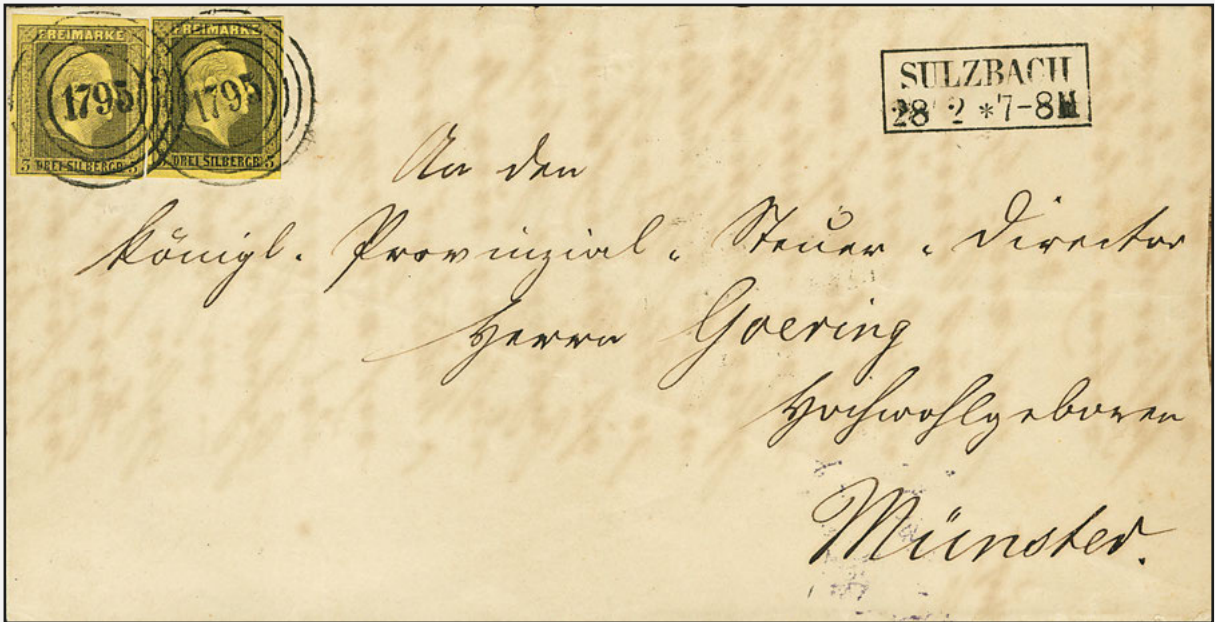 FREIMARKE FREIMARKE
1795 1795
3 DREI SILBERGR. 3 DREI SILBERGR. 3
SULZBACH
28 2 * 7-8
An den
Königl. Provinzial-Steuer-Director
Herrn Goering
Hochwohlgeboren
Münster.